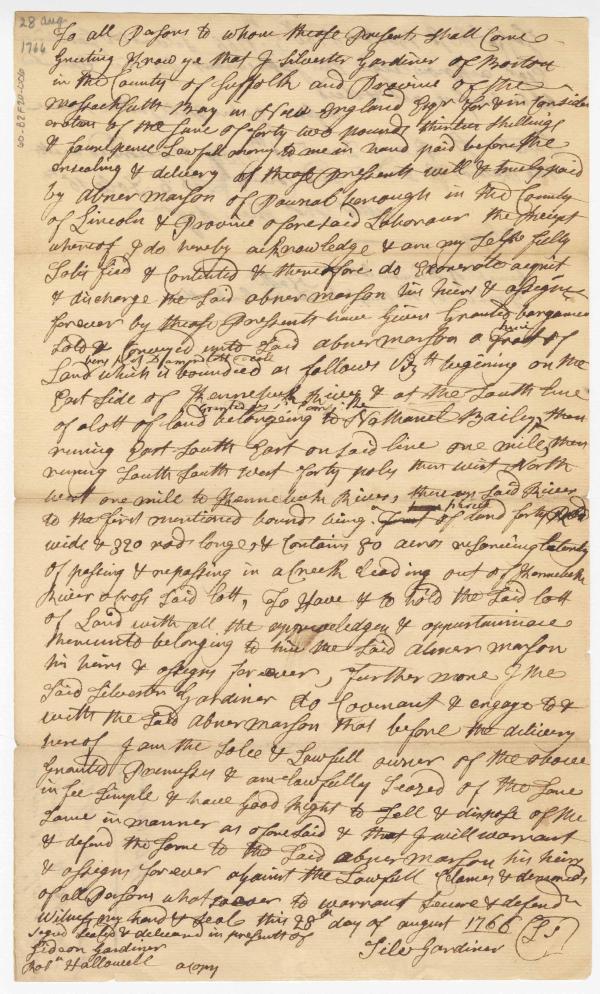 28 aug.
1766
To all Persons to whom these Presents shall Come
Greeting Know ye that I Silvester Gardiner of Boston
in the County of Suffolk and Province of the
Massachusetts Bay in New England Esqr for & in Consid
eration of the sume of forty two pounds thirteen shillings
& fourepence Lawfull money to me in hand paid before the
ensealing & delivery of these Presents well & truely paid
by abner marson of Pownal borough in the County
of Lincoln & Province aforesaid Labourer the Receipt
whereof I do hereby acknowledge & am my Selfe fully
Satis fied & Contented & thereofore do Exonerate acquit
& discharge the Said abner marson his heirs & assigns
forever by these Presents have Given Granted bargained
Sold & Conveyed unto Said abner marson a of
Land which is bounded as follows Vizt begining on the
East Side of Kennebeck River & at the South line
of a lott of land belongeing to Nathaniel Baily, then
runing East South East on Said line one mile, then
runing South South west forty poles then west North
west one mile to Kennebeck River, Said River
to the first mentioned bounds being of land forty
wide & 320 rods longe, & Contains 80 acres reserving Liberty
of passing & repassing in a Creek leading out of Kennebeck
River across Said lott, To Have & to hold the Said lott
of Land with all the & appurtinance
thereunto belonging to him the Said abner marson
his heirs & assigns for ever, further more I the
Said Silvester Gardiner do Covenant & engage to &
with the Said abner marson that before the delivery
hereof I am the Sole & Lawfull owner of the above
Granted Premises & am lawfully Seazed of the Same
in fee Simple & have Good Right to Sell & dispose of the
Same in manner as aforesaid & that I will warrant
& defend the Same to the Said abner marson his heirs
& assigns forever against the Lawfull Clames & demands
of all Persons whatsoever to warrant Secure & defend
Witness my hand & Seal this 28th day of august 1766
Signd Seald & delivered in presents of
Silr Gardiner (LS)
Gideon Gardiner
Robt Hallowell a copy